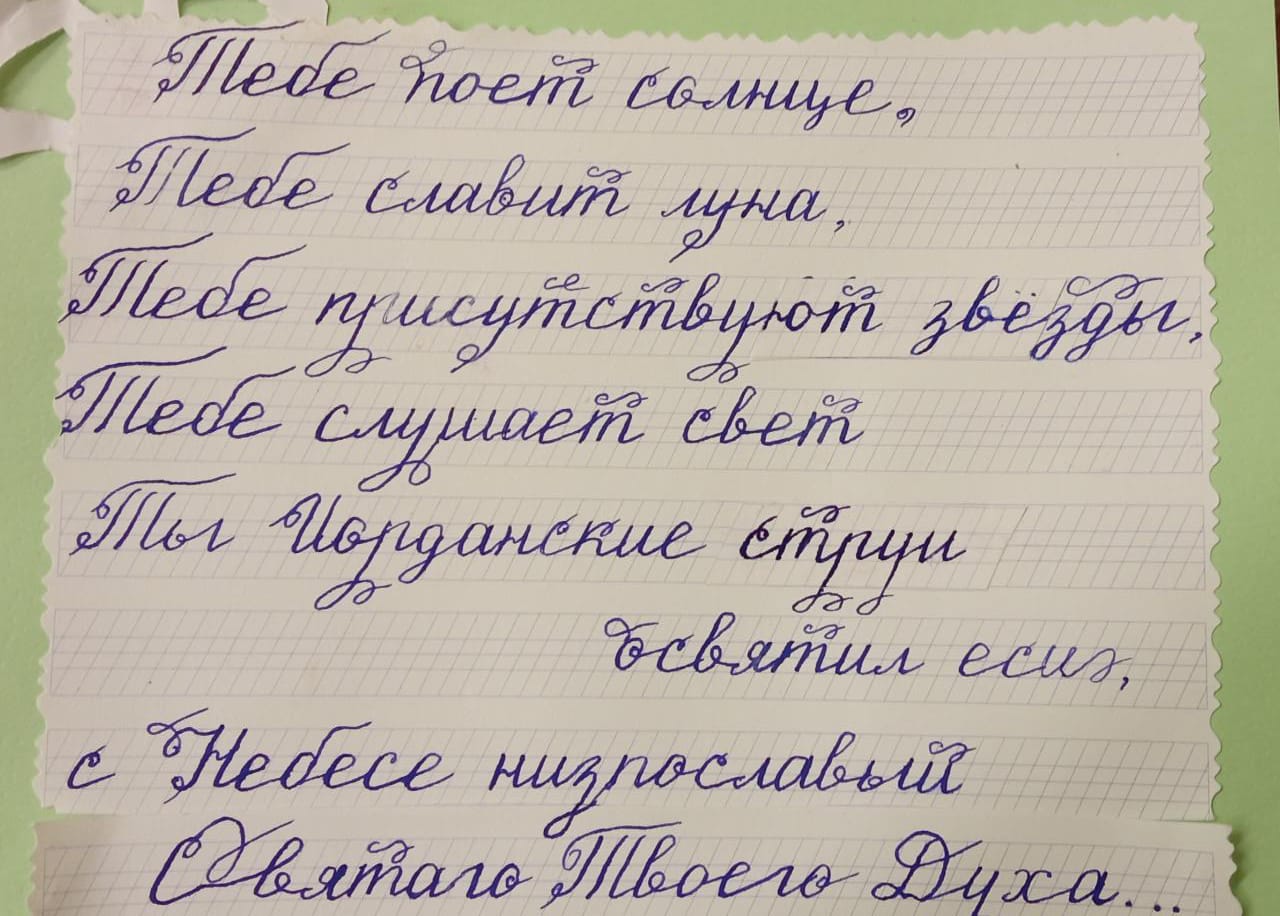 Тебе поет солнце,
Тебе славит луна,
Тебе присутствуют звёзды,
Тебе слушает свет
Ты Иорданские струи
освятил еси,
с Небесе низпославый
Святаго Твоего Духа...